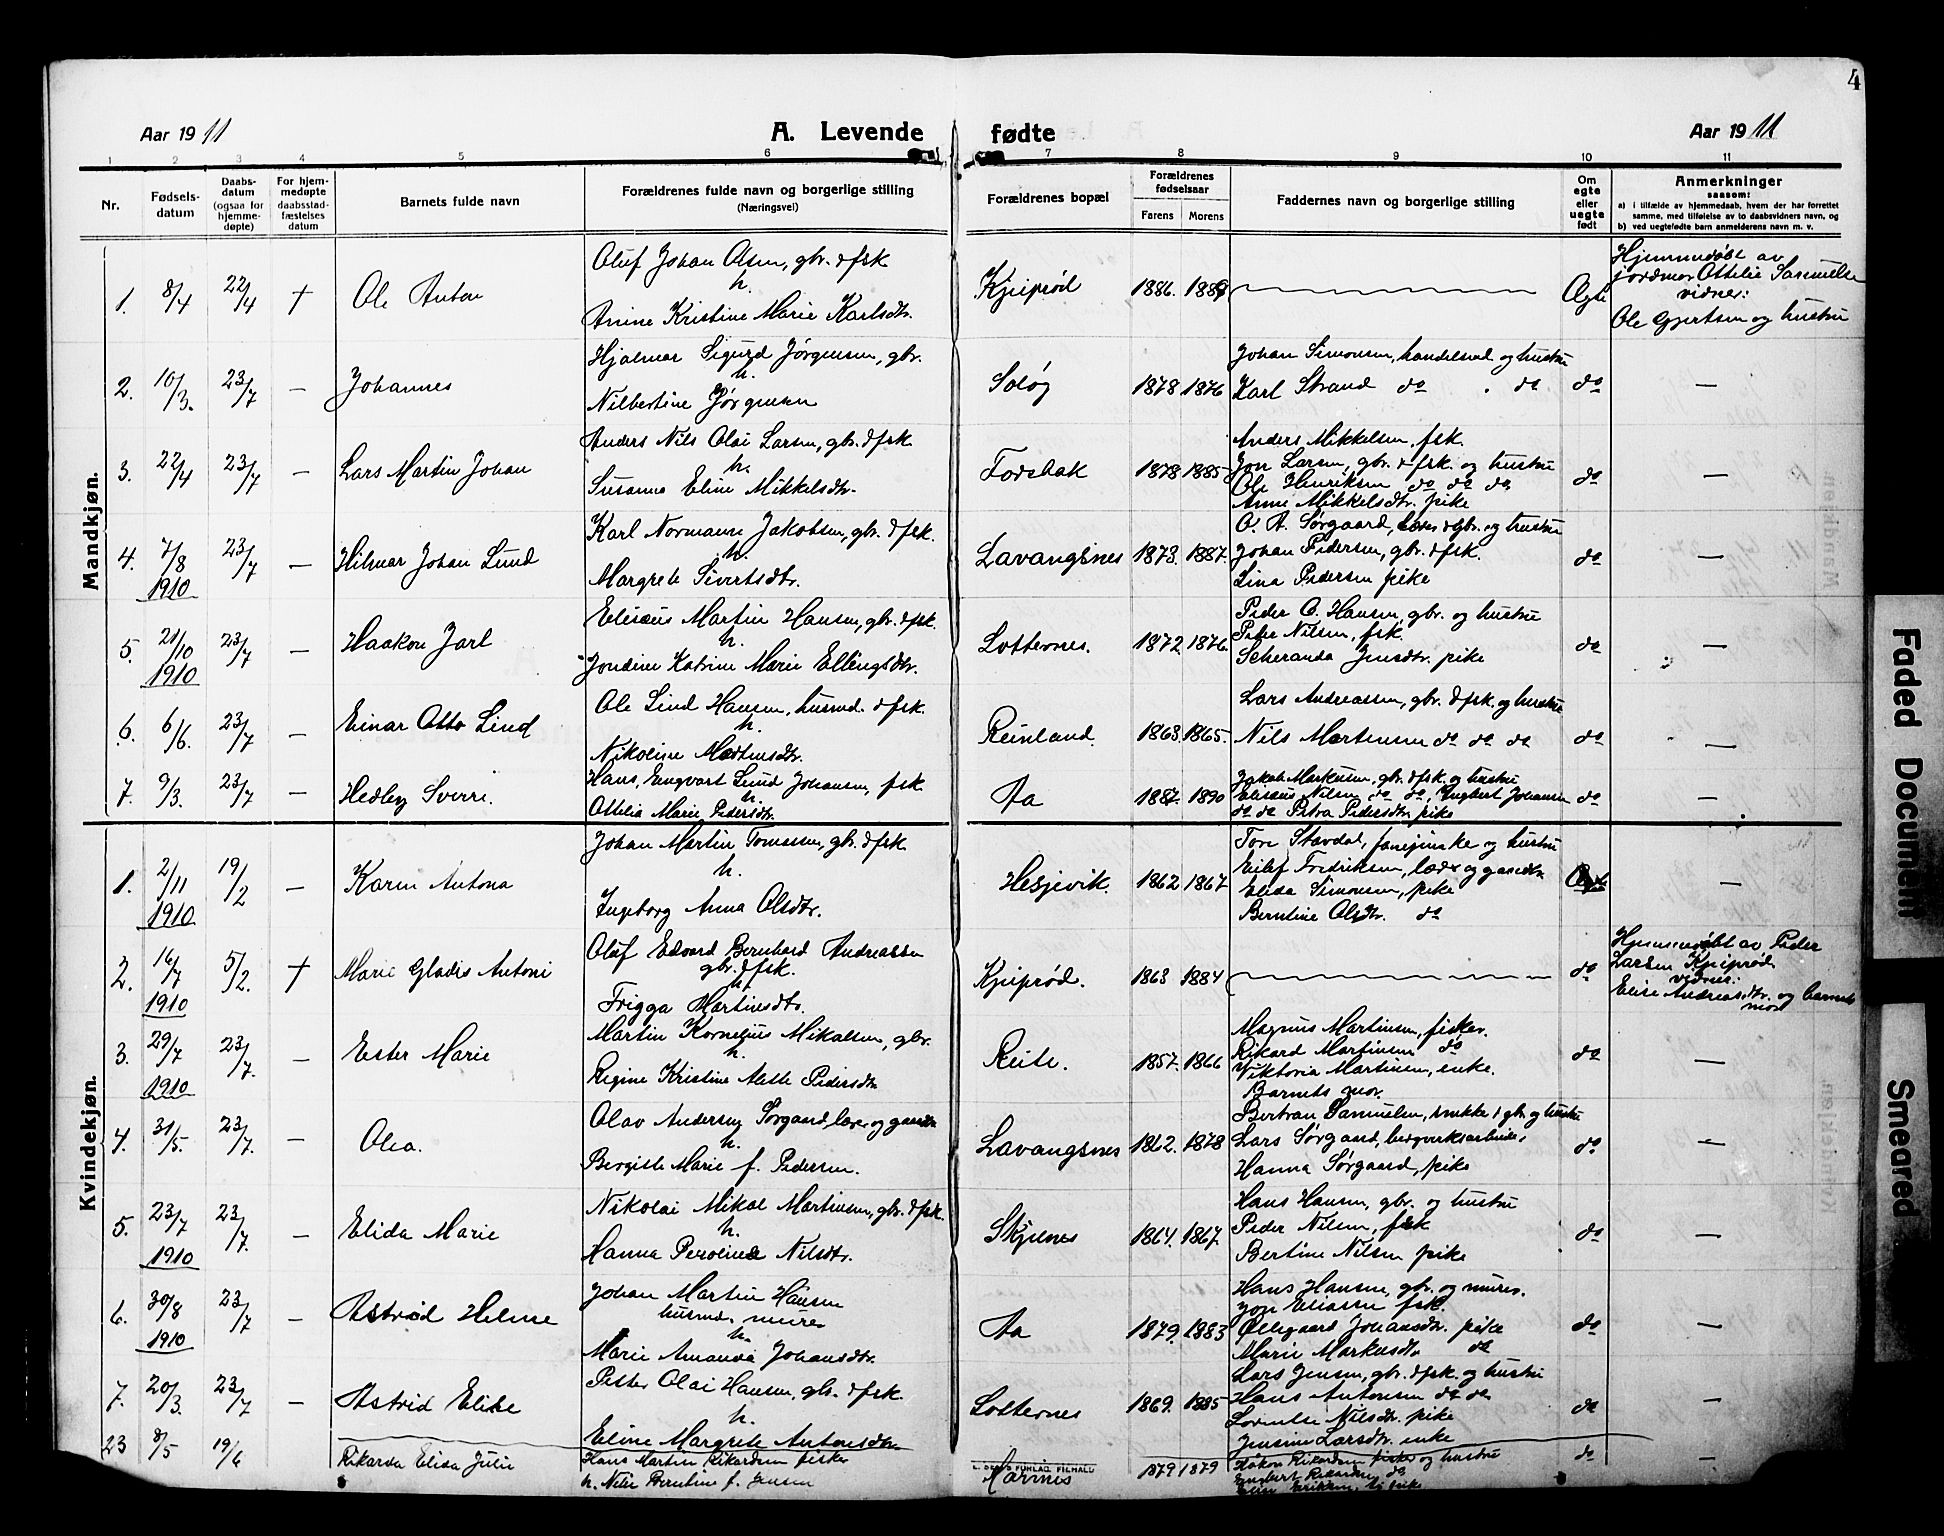 4
Aar 1911
A. Levende fødte
Aar 1911
1 2 3 4 5 6 7 8 9 10 11
Nr.
Fødsels-
datum
Daabs-
datum
(ogsaa for
hjemme-
døpte)
For hjem-
medøpte
daabsstad-
fæstelses
datum
Barnets fulde navn
Forældrenes fulde navn og borgerlige stilling
(Næringsvei)
Forældrenes bopæl
Forældrenes
fødselsaar
Farens Morens
Faddernes navn og borgerlige stilling
Om
egte
eller
uegte
født
Anmerkninger
saasom:
a) i tilfælde av hjemmedaab, hvem der har forrettet
samme, med tilføielse av to daabsvidners navn, og
b) ved uegtefødte barn anmelderens navn m. v.
Mandkjøn.
1. 8/4 22/4 † Ole Anton
Oluf Johan Olsen, gbr. & fsk.
h.
Anine Kristine Marie Karlsdtr.
Kjeiprød 1886. 1889 Ægte
Hjemmedøbt av
jordmor Ottelie Samuelse
vidner:
Ole Gjertsen og hustru
2. 10/3. 23/7 – Johannes
Hjalmar Sigurd Jørgensen, gbr.
h.
Nilbertine Jørgensen
Soløy 1878 1876
Johan Simonsen, handelsmd og hustru
Karl Strand do . do
do –
3. 22/4 23/7 – Lars Martin Johan
Anders Nils Olai Larsen, gbr. & fsk.
h.
Susanna Eline Mikkelsdtr.
Forsbak 1878 1885
Anders Mikkelsen, fsk.
Jon Larsen, gbr. & fsk. og hustru
Ole Henriksen do do do
Anne Mikkelsdtr. pike
do –
4. 7/8 1910 23/7 – Hilmar Johan Lund
Karl Normann Jakobsen, gbr. & fsk.
h.
Margrete Sivertsdtr.
Lavangsnes 1873. 1887.
O. A. Sørgaard, lærer & gbr. og hustru
Johan Pedersen, gbr. & fsk.
Lina Pedersen pike
do –
5. 21/10 1910 23/7 – Haakon Jarl
Elisæus Martin Hansen, gbr. & fsk.
h.
Jondine Katrine Marie Ellingsdtr.
Lotternes. 1872 1876.
Peder O. Hansen, gbr. og hustru
Peder Nilsen, fsk.
Scheranda Jensdtr. pike
do –
6. 6/6. 23/7 – Einar Otto Lind
Ole Lind Hansen, husmd. & fsk.
h.
Nikoline Mortensdtr.
Reinland. 1863. 1865.
Lars Andreassen, gbr. & fsk. og hustru
Nils Martinsen do do do
do –
7. 9/3. 23/7 – Hedley Sverre.
Hans, Engvart Lund Johansen, fsk.
h.
Ottelia Marie Pedersdtr.
Aa 1887. 1890
Jakob Markusen, gbr. & fsk. og hustru
Elisæus Nilsen do do, Engbert Johansen
do do Petra Pedersdtr. pike
do –
Kvindekjøn.
1. 2/11 1910 19/2 – Karen Antona
Johan Martin Tomassen, gbr. & fsk.
h.
Ingeborg Anna Olsdtr.
Hesjevik. 1862 1867
Tore Stavdal, fanejunke og hustru
Eilef Fredriksen, lærer og gaardbr.
Elida Simonsen, pike
Berntine Olsdtr. do
Ægte –
2. 16/7 1910 5/2. † Marie Gladis Antoni
Oluf Edvard Bernhard Andreassen
gbr. & fsk.
h.
Frigga Martinesdtr.
Kjeiprød. 1863 1884 do
Hjemmedøbt av Peder
Larsen Kjeiprød
vidner:
Elise Andreasdtr. og barnets
mor
3. 29/7 1910 23/7. – Ester Marie
Martin Kornelius Mikalsen, gbr.
h.
Regine Kristine Aette Pedersdtr
Reite. 1857. 1866
Magnus Martinsen, fisker.
Rikard Martinsen do
Viktoria Martinsen, enke.
Barnets mor.
do –
4. 31/5. 23/7. – Olea.
Olav Andersen Sørgaard, lærer og gaardbr
h.
Bergitte Marie f. Pedersen.
Lavangsnes 1862. 1878
Bertran Samuelsen, snekker, gbr. og hustru
Lars Sørgaard, bergverksarbeider
Hanna Sørgaard, pike
do –
5. 23/7 1910 23/7. – Elida Marie
Nikolai Mikal Martinsen, gbr. & fsk.
h.
Hanna Peroline Nilsdtr.
Skjenes 1864. 1867.
Hans Hansen, gbr. og hustru
Peder Nilsen, fsk
Bertine Nilsen pike
do –
6. 30/8 1910 23/7 – Astrid Helene
Johan Martin Hansen
husmd. murer
h.
Marie Amanda Johansdtr.
Aa 1879. 1883
Hans Hansen, gbr. og murer.
Jon Eliassen fsk.
Øllegaard Johansdtr. pike
Marie Markusdtr do
do –
7. 20/3. 23/7 – Astrid Elise
Peter Olai Hansen, gbr. & fsk.
h.
Eline Margrete Antonsdtr.
Lotternes 1869. 1885
Lars Jensen, gbr. & fsk. og hustru
Hans Antonsen do do
Lorentse Nilsdtr. pike
Jensine Larsdtr. enke
do –
23 8/5 19/6 Rikarda Elida Julie
Hans Martin Rikardsen fisker
h. Nelle Berntine f. Jensen
Marnes 1879 1879
Håkon Rikardsen fisker og hustru
Engbert Rikardsen do
do –
Faded Document
Smeared